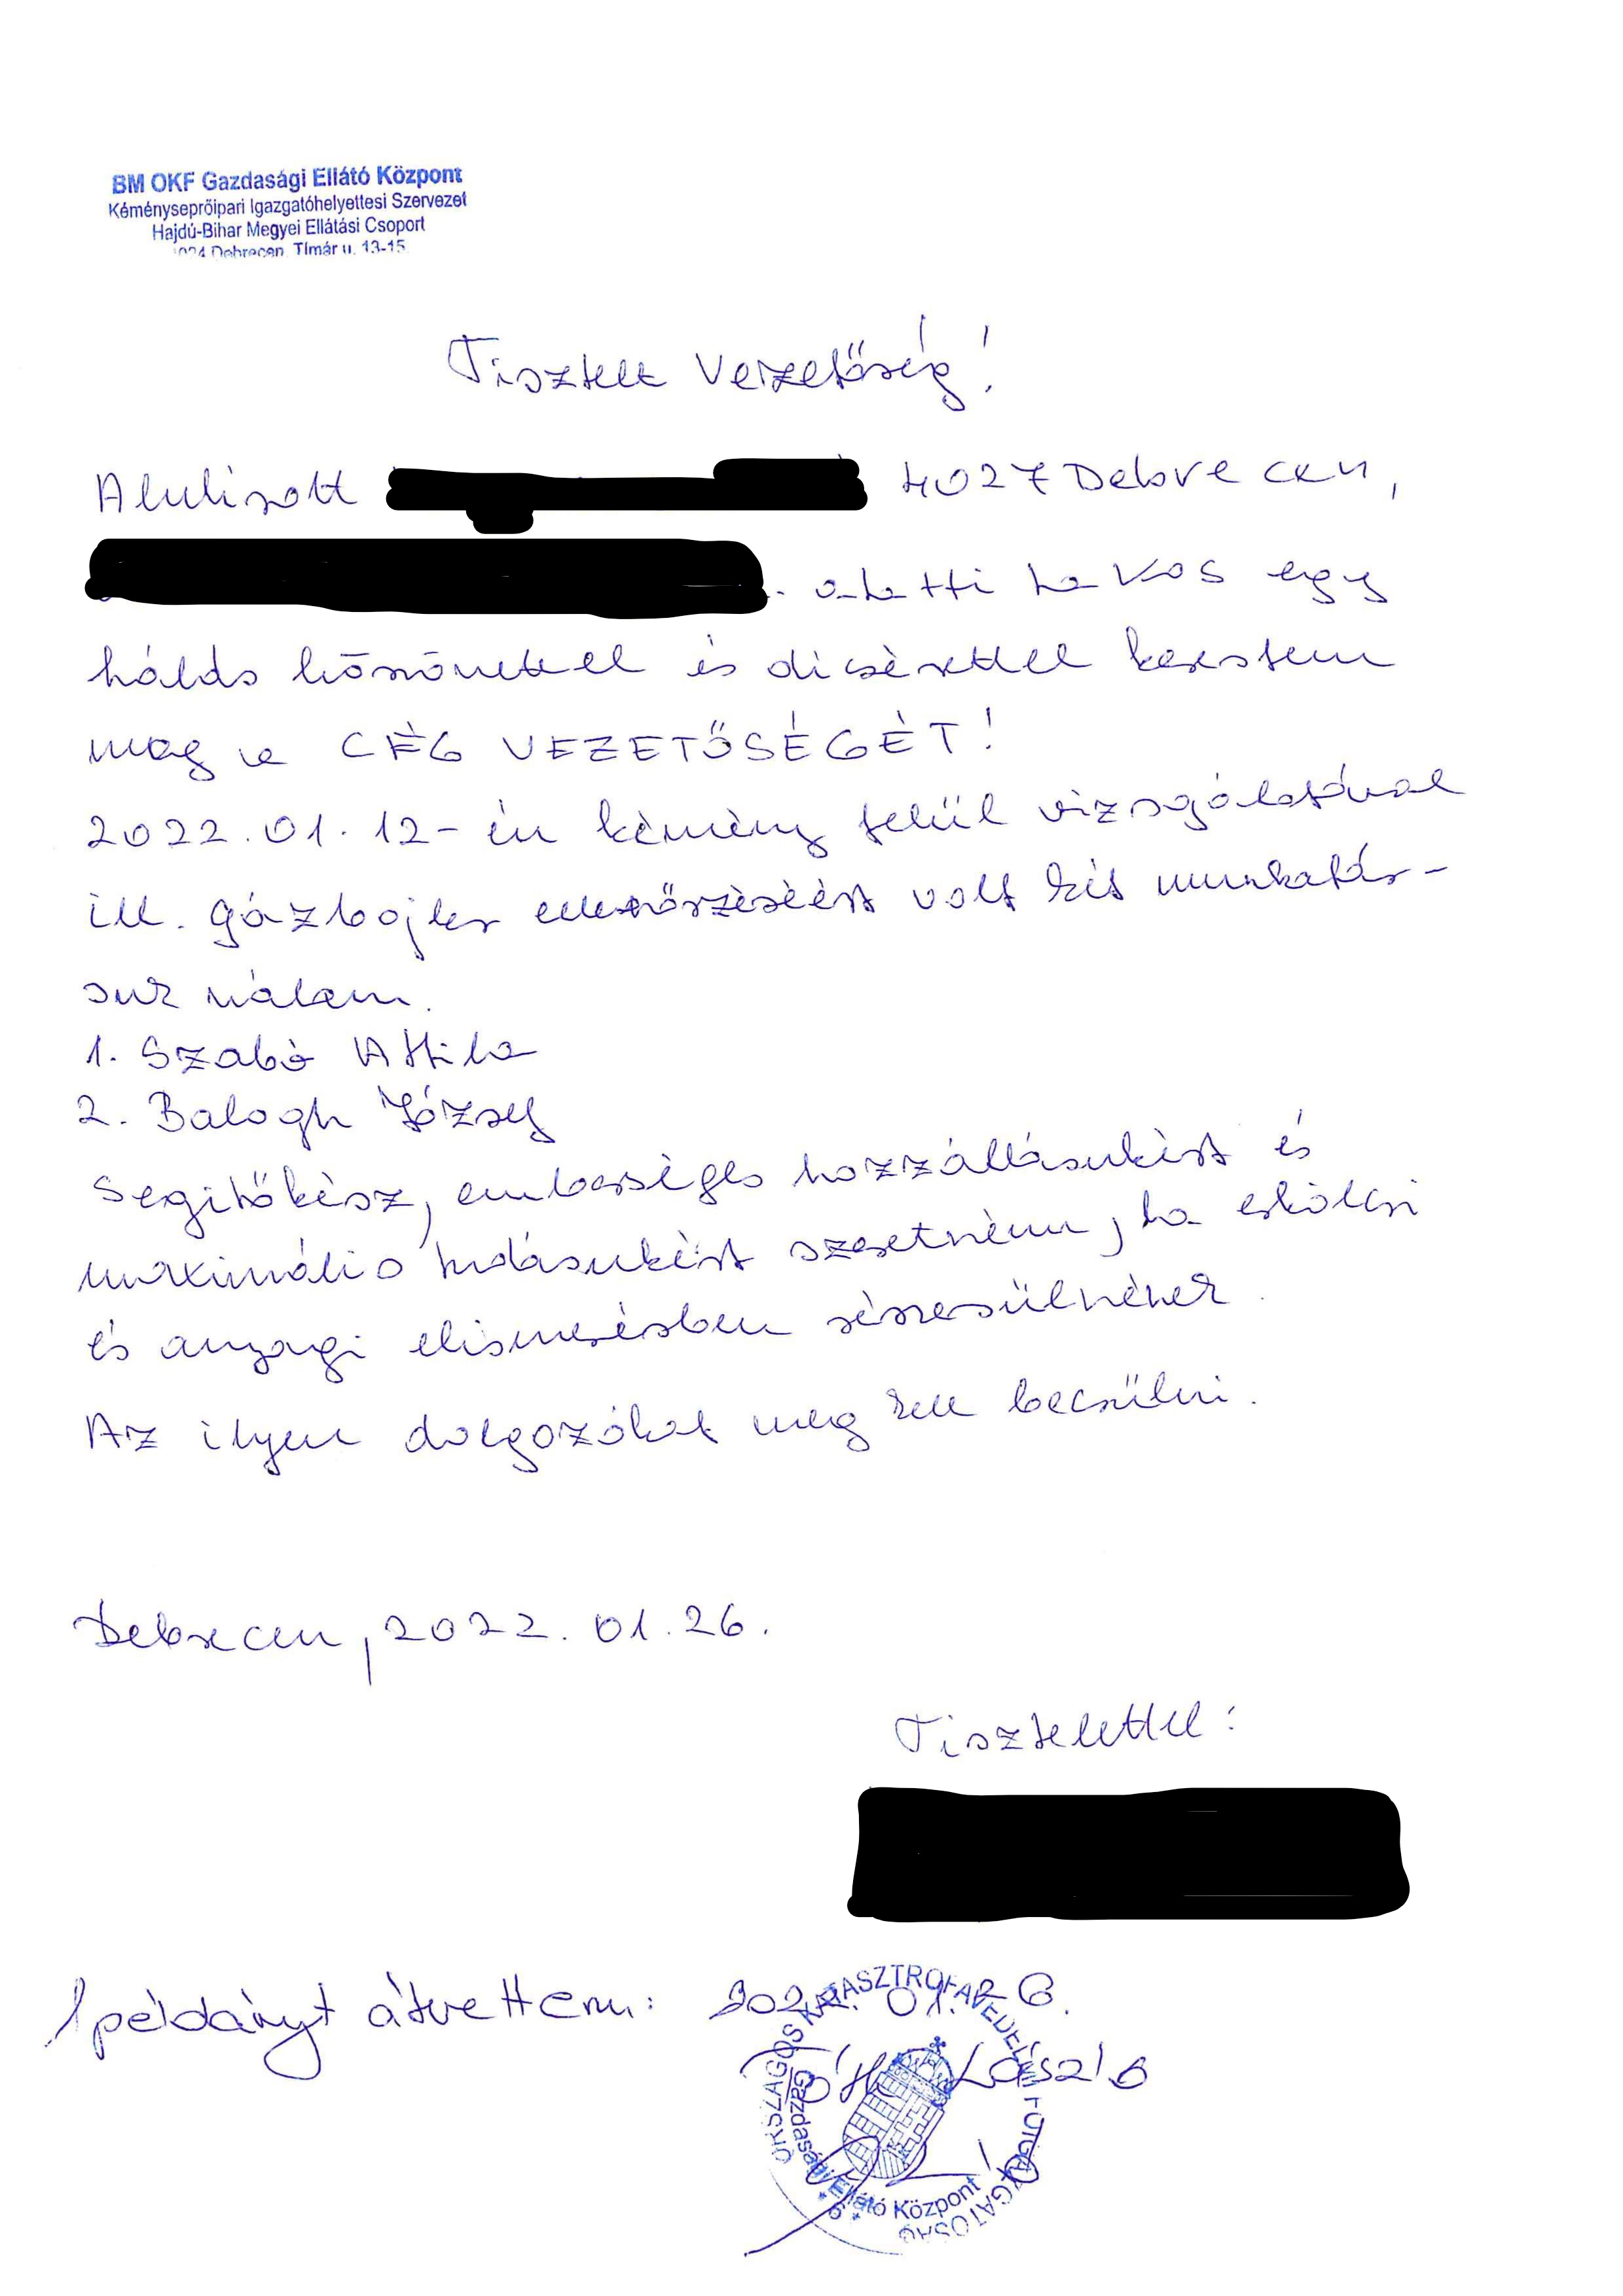 BM OKF Gazdasági Ellátó Központ
Kéményseprőipari Igazgatóhelyettesi Szervezet
Hajdú-Bihar Megyei Ellátási Csoport
4024 Debrecen, Tímár u. 13-15.
Tisztelt Vezetőség!
Alulírott 4027 Debrecen,
alatti lakos egy
hálás köszönettel és dicsérettel kerestem
meg a CÉG VEZETŐSÉGÉT!
2022.01.12-én kémény felül vizsgálatával
ill. gázbojler ellenőrzéséért volt két munkatár-
suk nálam.
1. Szabó Attila
2. Balogh József
Segítőkész, emberséges hozzáállásukért és
maximális tudásukért szeretném, ha erkölcsi
és anyagi elismerésben részesülnének.
Az ilyen dolgozókat meg kell becsülni.
Debrecen, 2022.01.26.
Tisztelettel:
1 példányt átvettem: 2022.01.26.
Tóth László
ORSZÁGOS KATASZTRÓFAVÉDELMI FŐIGAZGATÓSÁG
Gazdasági Ellátó Központ
* 6 *